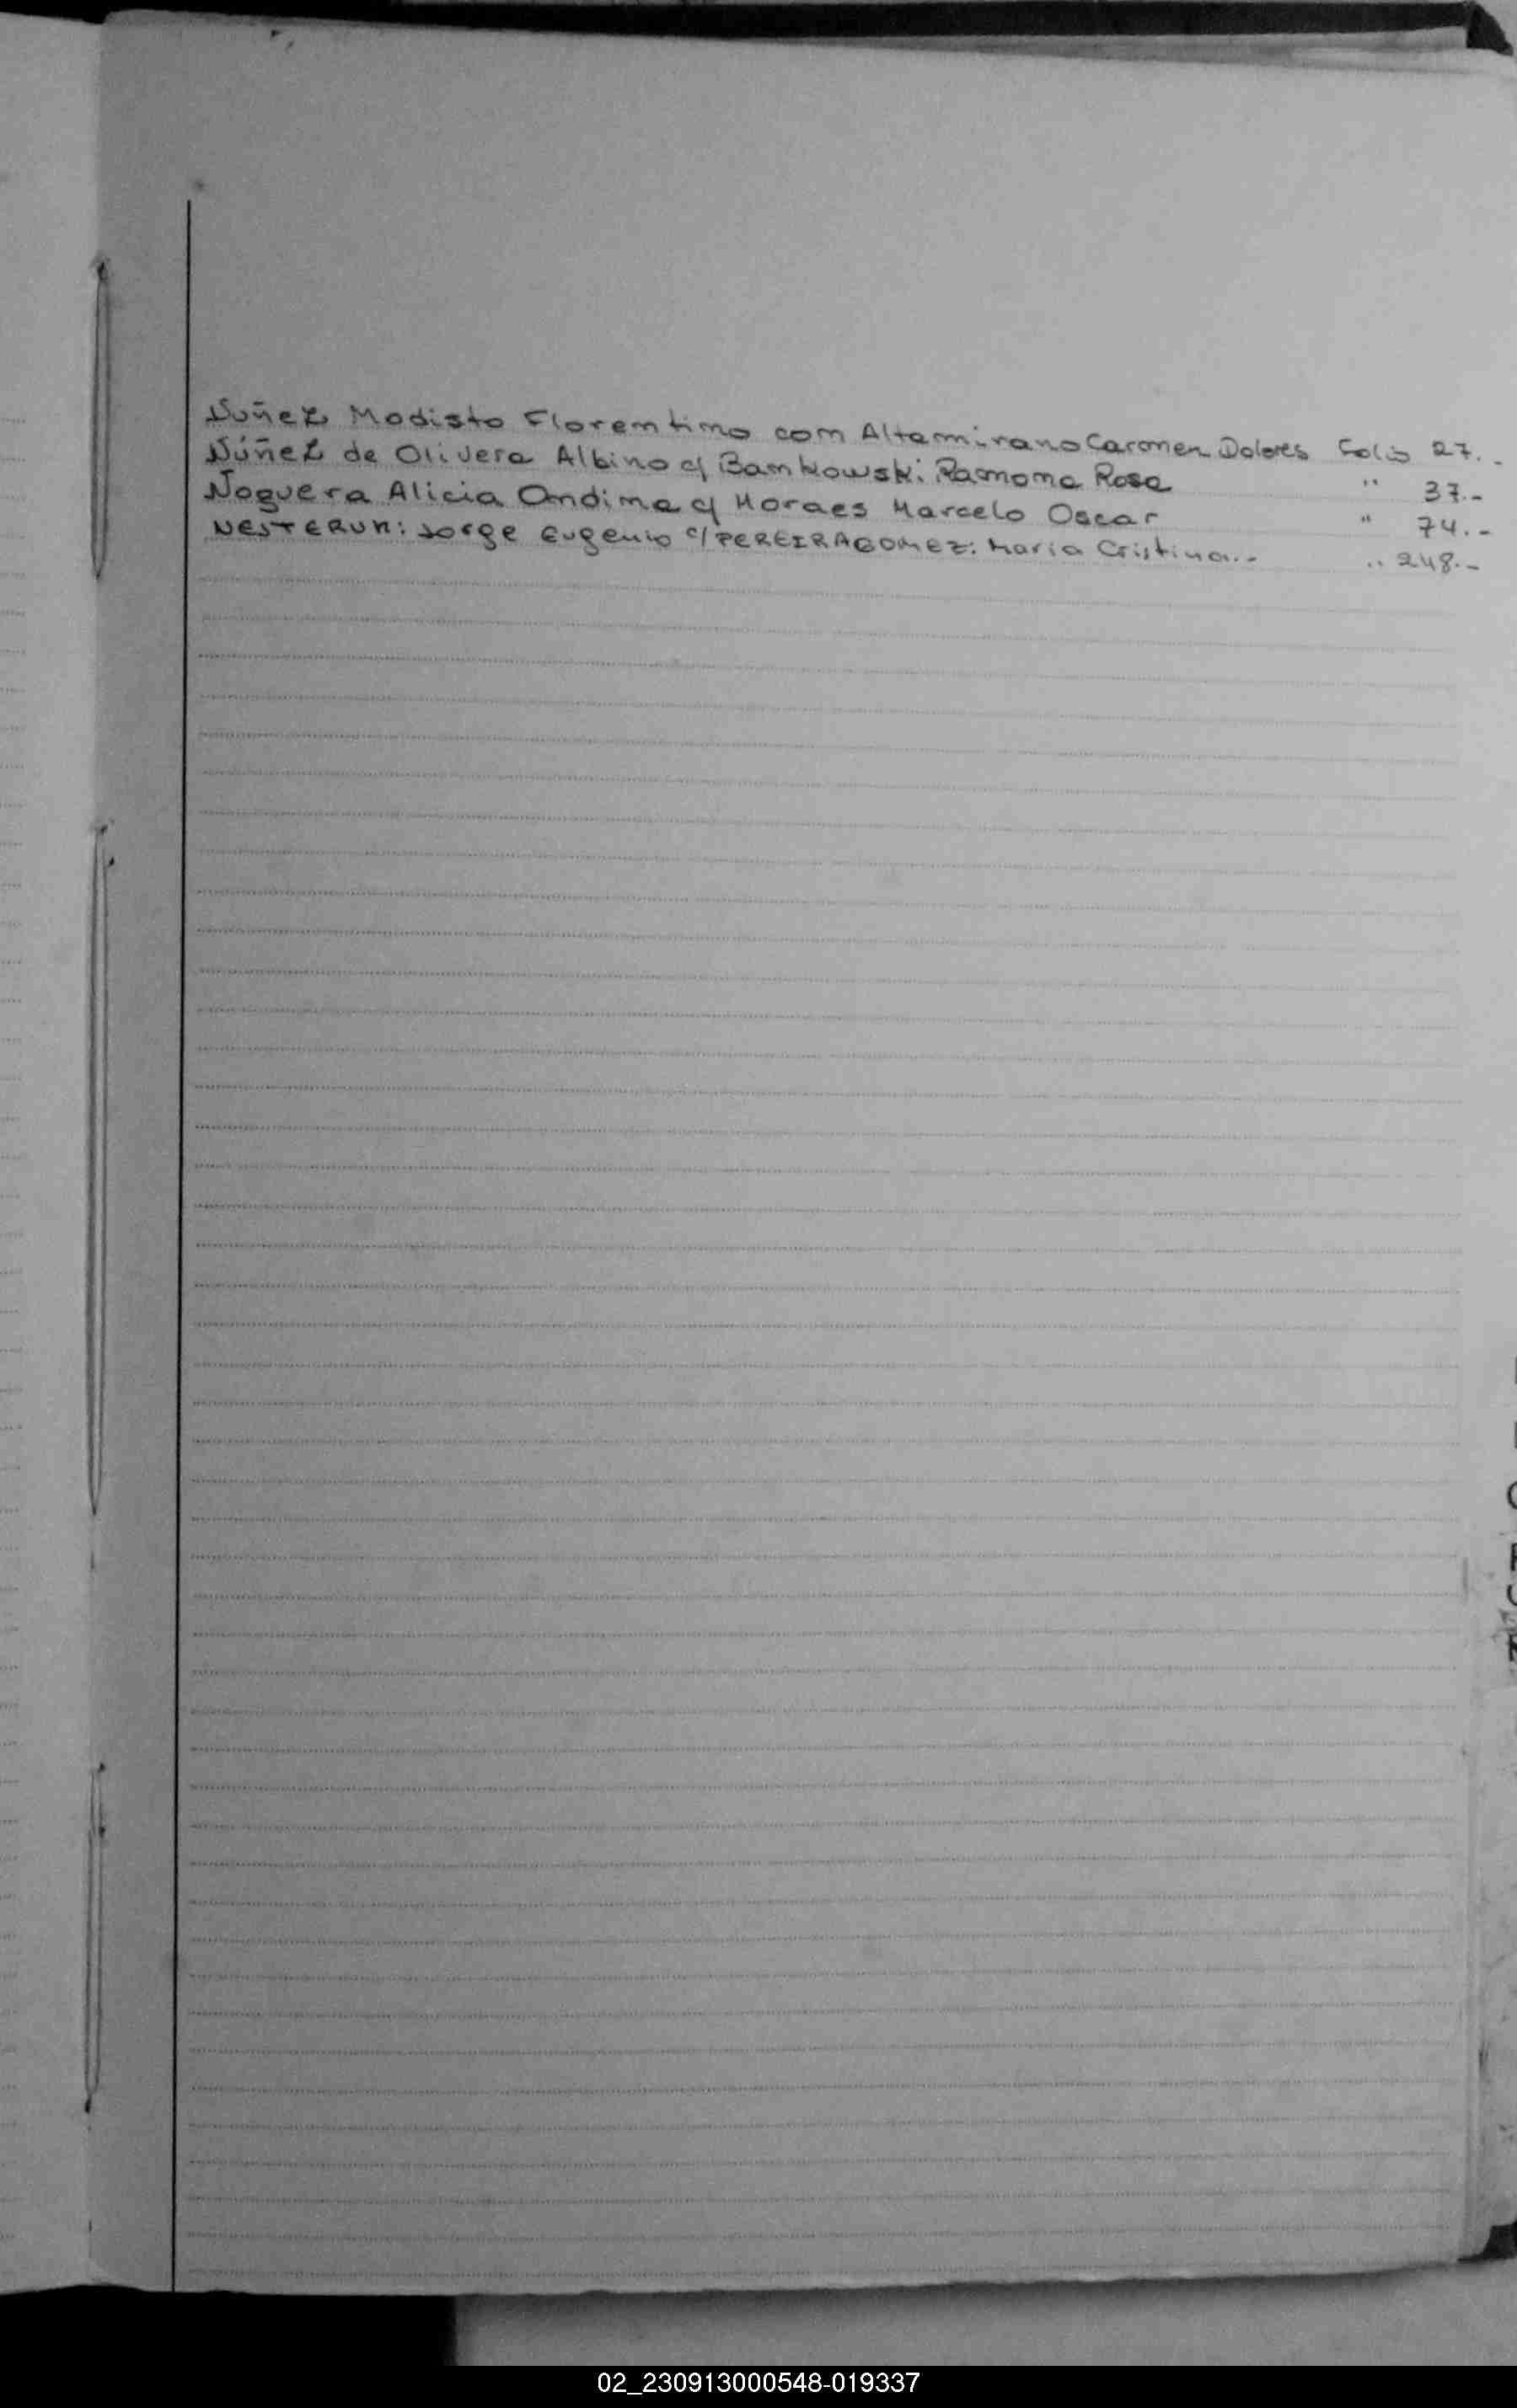 Nuñez Modisto Florentino con Altamirano Carmen Dolores Folio 27.-
Núñez de Olivera Albino c/ Bankowski Ramona Rosa " 37.-
Noguera Alicia Ondina c/ Moraes Marcelo Oscar " 74.-
NESTERUK: Jorge Eugenio c/ PEREIRA GOMEZ: Maria Cristina.- " 248.-
02_230913000548-019337